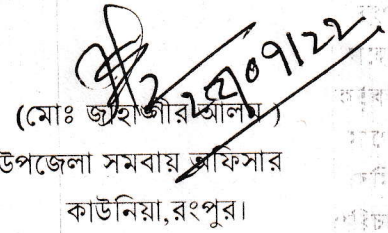 (মোঃ জাহাঙ্গীর আলম )
উপজেলা সমবায় অফিসার
কাউনিয়া,রংপুর।